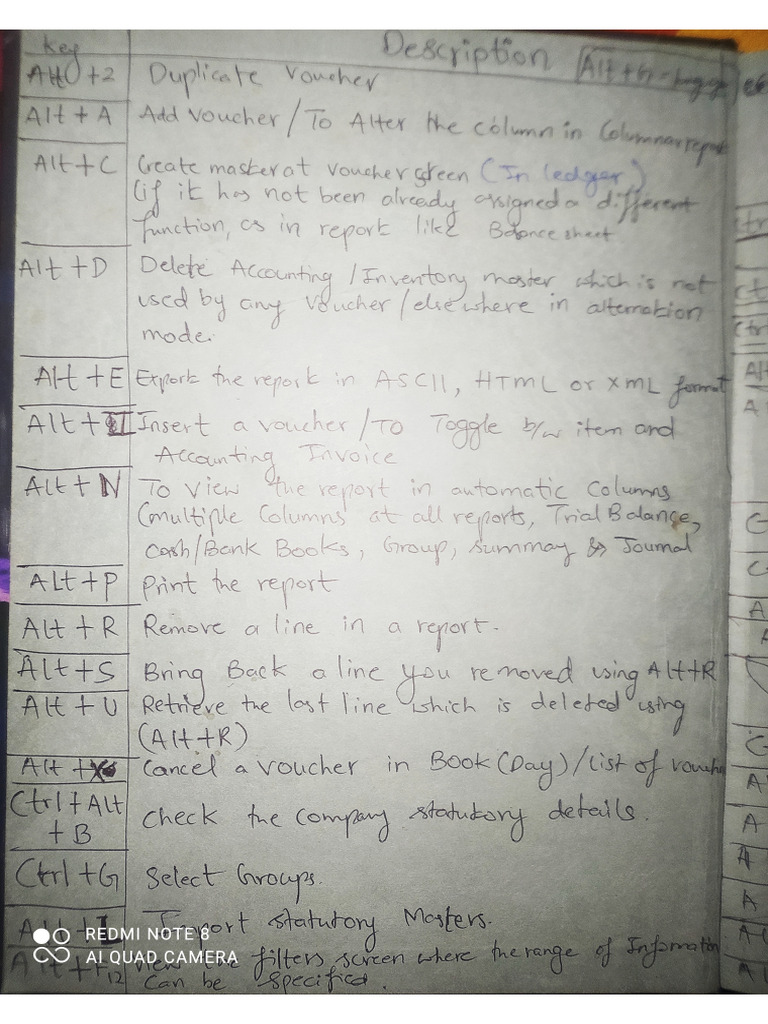 Key Description Alt + G - Language
Alt + 2 Duplicate Voucher
Alt + A Add Voucher / To Alter the column in Columnar report
Alt + C Create master at voucher screen (In ledger)
(if it has not been already assigned a different
function, as in report like Balance sheet
Alt + D Delete Accounting / Inventory master which is not
used by any voucher / elsewhere in alternation
mode.
Alt + E Export the report in ASCII, HTML or XML format
Alt + I Insert a voucher / To Toggle b/w item and
Accounting Invoice
Alt + N To view the report in automatic Columns
(multiple Columns at all reports, Trial Balance,
Cash/Bank Books, Group, summay & Journal
ALt + P Print the report
Alt + R Remove a line in a report.
Alt + S Bring Back a line you removed using Alt+R
Alt + U Retrieve the last line which is deleted using
(Alt+R)
Alt + X Cancel a voucher in Book (Day) / list of vouch
Ctrl + Alt
+ B check the company statutory details.
Ctrl + G Select Groups.
Alt + I Import statutory Masters.
Alt + F12 View the filters screen where the range of Information
can be specified.
REDMI NOTE 8
AI QUAD CAMERA